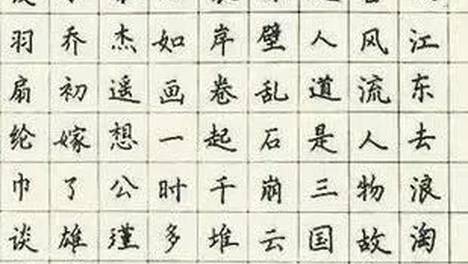 江东去浪淘
风流人物故
人道是三国
壁乱石崩云
岸卷起千堆
如画一时多
杰遥想公瑾
乔初嫁了雄
羽扇纶巾谈